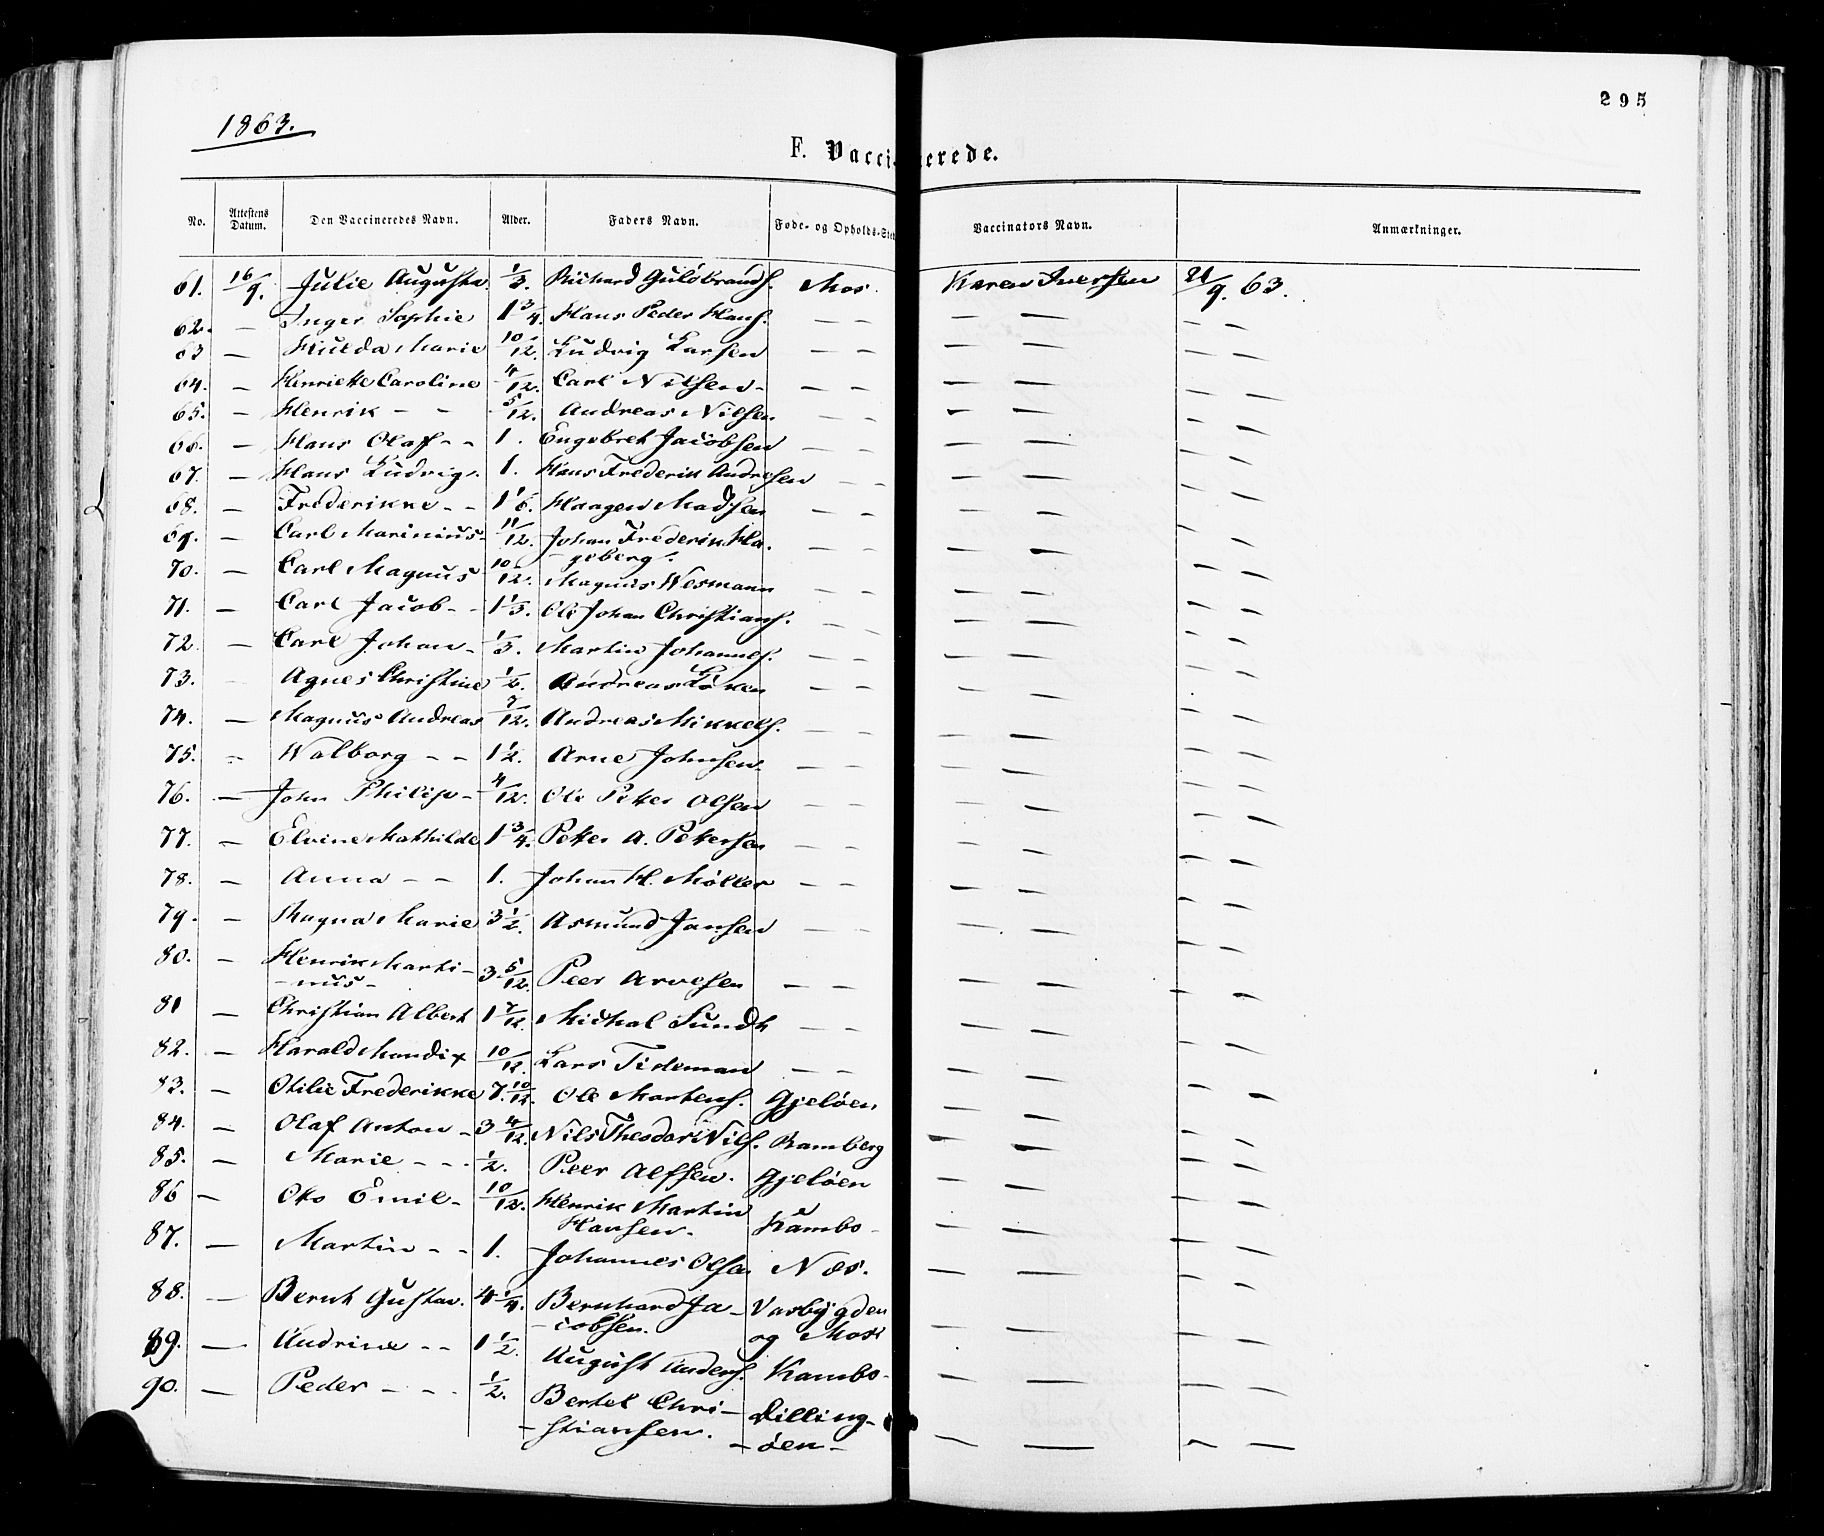 295
1863.
F. Vaccinerede.
No. Attestens Datum. Den Vaccineredes Navn. Alder. Faders Navn. Føde- og Opholds-Sted Vaccinators Navn. Anmærkninger.
61. 16/9. Julie Augusta 1/3. Richard Gulbrands. Mos. Karen Iversen 21/9. 63.
62. — Inger Sophie 1 3/4. Hans Peder Hans. — — — — — —
63 — Hulda Marie 10/12. Ludvig Larsen — — — — — —
64. — Henriette Caroline 4/12. Carl Nilsen - — — — — — —
65. — Henrik - - 5/12. Andreas Nilsen — — — — — —
66. — Hans Olaf - - 1. Engebret Jacobsen — — — — — —
67. — Hans Ludvig - 1. Hans Frederik Andresen — — — — — —
68. — Frederikke - - 1 1/6. Haagen Madsen — — — — — —
69. — Carl Marinius - 11/12. Johan Frederik Ha-
geberg. — — — — — —
70. — Carl Magnus - 10/12. Magnus Wesmann — — — — — —
71. — Carl Jacob - - 1 1/3. Ole Johan Christians. — — — — — —
72. — Carl Johan - 1/3. Martin Johannes. — — — — — —
73. — Agnes Christine 1/2. Andreas Løken — — — — — —
74. — Magnus Andreas 7/12. Andreas Mikkels. — — — — — —
75. — Walborg - - 1 1/2. Arne Johnsen — — — — — —
76. — John Philip - 4/12. Ole Peter Olsen — — — — — —
77. — Elvine Mathilde 1 3/4. Peter A. Petersen — — — — — —
78. — Anna - - 1. Johan H. Møller — — — — — —
79. — Magna Marie 3 1/2. Asmund Jansen — — — — — —
80. — Henrik Marti-
-nus- 3 5/12. Peer Arvesen — — — — — —
81 — Christian Albert 1 7/12. Michal Sundt — — — — — —
82. — Harald Mandix 10/12. Lars Tideman — — — — — —
83. — Otilie Frederikke 7. 10/12. Ole Martens. Gjeløen — — — —
84. — Olaf Anton - 3 4/12. Nils Theodor Nils. Ramberg — — — —
85. — Marie - - - 1/2. Peer Alfsen. Gjeløen — — — —
86 — Oto Emil - 10/12. Henrik Martin
Hansen. Kambo - — — — —
87. — Martin - - 1. Johannes Olsen Næs. — — — —
88. — Bernt Gustav. 4 1/4. Bernhard Ja-
-cobsen. Vasbygden
og Moss — — — —
89. — Andrine - - 1 1/2. August Anders. Kambo - — — — —
90. — Peder - - - 1/2. Bertel Chri-
-stiansen. Dilling-
-øen- — — — —